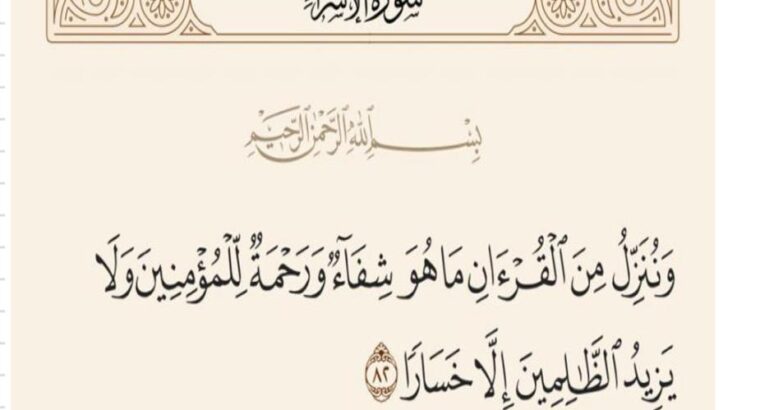 سُورَةُ الإِسْرَاءِ
بِسْمِ اللَّهِ الرَّحْمَٰنِ الرَّحِيمِ
وَنُنَزِّلُ مِنَ ٱلْقُرْءَانِ مَا هُوَ شِفَآءٌ وَرَحْمَةٌ لِّلْمُؤْمِنِينَ وَلَا
يَزِيدُ ٱلظَّٰلِمِينَ إِلَّا خَسَارًا ٨٢